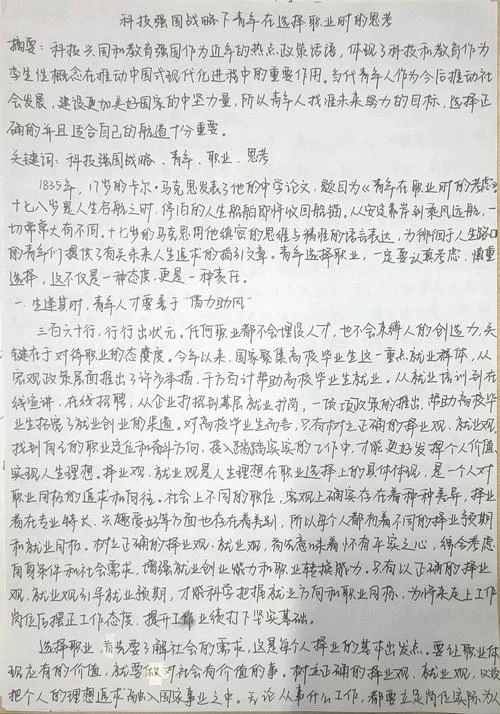 科技强国战略下青年在选择职业时的思考
摘要：科技兴国和教育强国作为近年的热点政策话语，体现了科技和教育作为
孪生性概念在推动中国式现代化进程中的重要作用。当代青年人作为今后推动社
会发展，建设更加美好国家的中坚力量，所以青年人找准未来努力的目标，选择正
确的并且适合自己的航道十分重要。
关键词：科技强国战略、青年、职业、思考
1835年，17岁的卡尔·马克思发表了他的中学论文，题目为《青年在职业时的考虑》
十七八岁是人生启航之时，停泊的人生船舶即将收回船锚。从安定养护到乘风远航，一
切常常大有不同。十七岁的马克思用他缜密的思维与精准的语言表达，为徘徊于人生路口
的青年们提供了有关未来人生追求的指引文章。青年选择职业，一定要认真考虑，慎重
选择，这不仅是一种态度，更是一种责任。
一、生逢其时，青年人才要善于“借力助风”
三百六十行，行行出状元。任何职业都不会埋没人才，也不会束缚人的创造力，关
键在于对待职业的态度。今年以来，国家聚集高校毕业生这一重点就业群体，从
宏观政策层面推出了许多举措，千方百计帮助高校毕业生就业。从就业培训到在
线宣讲、在线招聘，从企业扩招到基层就业扩岗，一项项政策的推出，帮助高校毕业
生拓展了就业创业的渠道。对高校毕业生而言，只有树立正确的择业观、就业观，
找到自己的职业定位和奋斗方向，投入踏踏实实的工作中，才能更好发挥个人价值、
实现人生理想。择业观、就业观是人生理想在职业选择上的具体体现，是一个人对
职业目标的追求和向往。社会上不同的职位，客观上确实存在着种种差异，择业
者在专业特长、兴趣爱好等方面也存在着差别，所以每个人都有着不同的择业预期
和就业目标。树立正确的择业观、就业观，首先意味着怀有平实之心，综合考虑
自身条件和社会需求，增强就业创业能力和职业转换能力。只有以正确的择业
观、就业观引导就业预期，才能科学把握就业方向和职业目标，为将来走上工作
岗位后摆正工作态度、提升工作业绩打下坚实基础。
选择职业，首先要了解社会的需求，这是每个人择业的基本出发点。要让职业体
现应有的价值，就要做对社会有价值的事。树立正确的择业观、就业观，必须
把个人的理想追求融入国家事业之中。无论从事什么工作，都要立足岗位实际，为人